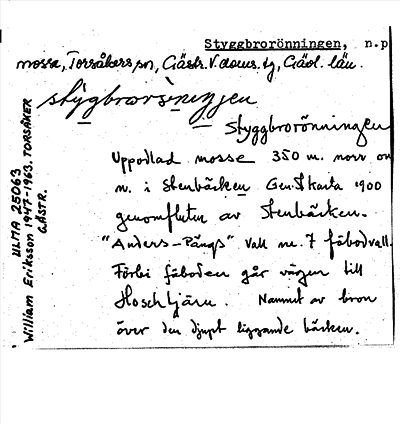 Styggbrorönningen, n.p
mosse, Torsåkers sn, Gästr. V. doms. tg, Gävl. län.
Styggbrorönningen
Uppodlad mosse 350 m. norr om
n. i Stenbäcken Gen.St.karta 1900
genomfluten av Stenbäcken.
"Anders-Pängs" vall nr. 7 fäbodvall.
Förbi fäboden går vägen till
Hoschtjärn. Namnet av bron
över den djupt liggande bäcken.
ULMA 25063
William Eriksson 1947-1963. TORSÅKER
GÄSTR.